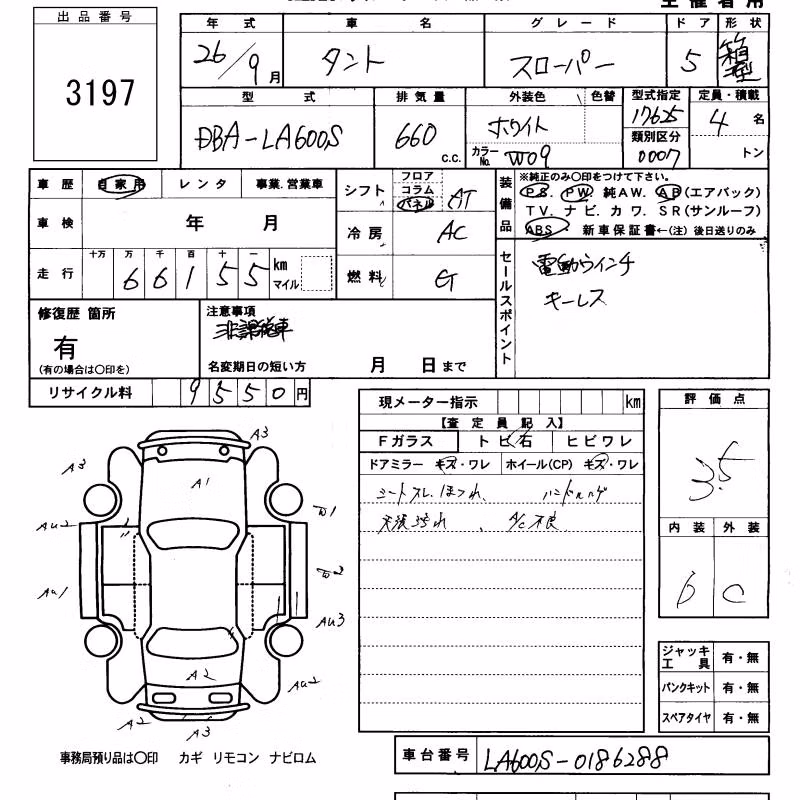 出品番号
3197
年 式 車 名 グレード ドア 形状
26/9月 タント スローパー 5 箱型
型 式 排気量 外装色 色替 型式指定 定員・積載
DBA-LA600S 660 c.c. ホワイト 17625 4 名
カラーNo. W09 類別区分 0007 トン
車歴 自家用 レンタ 事業.営業車
車検 年 月
走行 十万 万 千 百 十 一 km マイル
66155
シフト フロア コラム パネル AT
冷房 AC
燃料 G
装備品 ※純正のみ〇印をつけて下さい。
PS. PW. 純AW. AB(エアバック)
TV. ナビ. カワ. SR(サンルーフ)
ABS. 新車保証書←(注) 後日送りのみ
セールスポイント
電動ウインチ
キーレス
修復歴 箇所
有
(有の場合は〇印を)
注意事項
非課税車
名変期日の短い方 月 日まで
リサイクル料 9550円
現メーター指示 km
【査定員記入】
Fガラス トビ石 ヒビワレ
ドアミラー キズ・ワレ ホイール(CP) キズ・ワレ
シートスレ、ほつれ、
A/C不良
評価点
3.5
内装 外装
D C
ジャッキ工具 有・無
パンクキット 有・無
スペアタイヤ 有・無
A3
A3
A1
AU2
AU1
AU3
A2
AU2
A2
A3
事務局預り品は〇印 カギ リモコン ナビロム
車台番号 LA600S-0186288